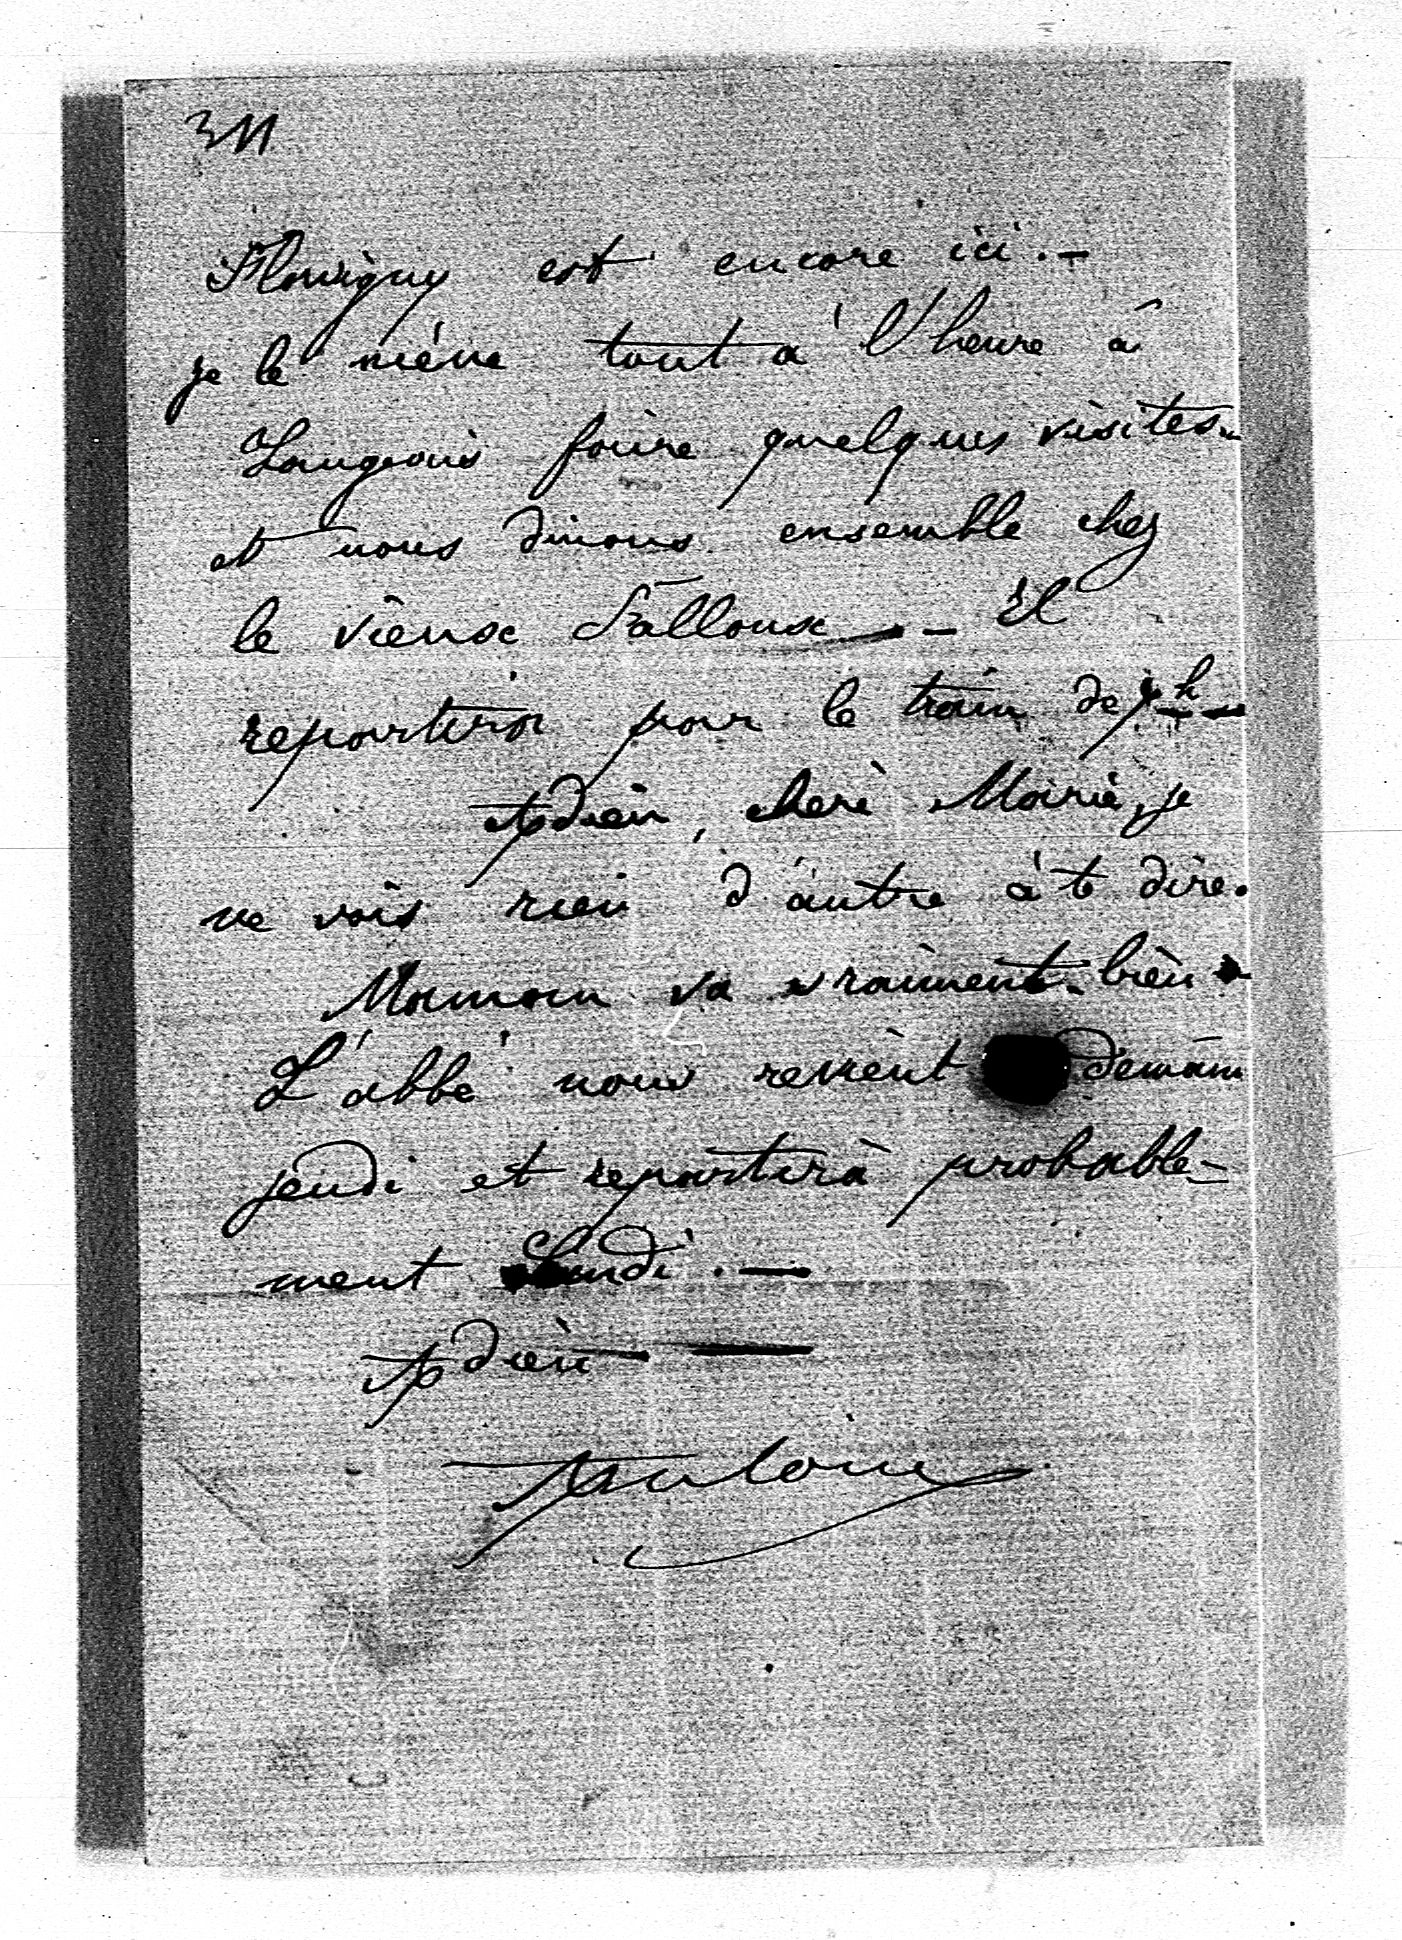 Flavigny est encore ici. -
je le mène tout à l'heure à
Langeais faire quelques visites.
et nous dinons ensemble chez
le vieux Salloux - Il
repartira pour le train de h
Adieu, chère Marie, je
ne vois rien d'autre à te dire.
Maman va vraiment bien
L'abbé nous revient demain
jeudi et repartira probable-
ment Lundi. -
Adieu
Antoine